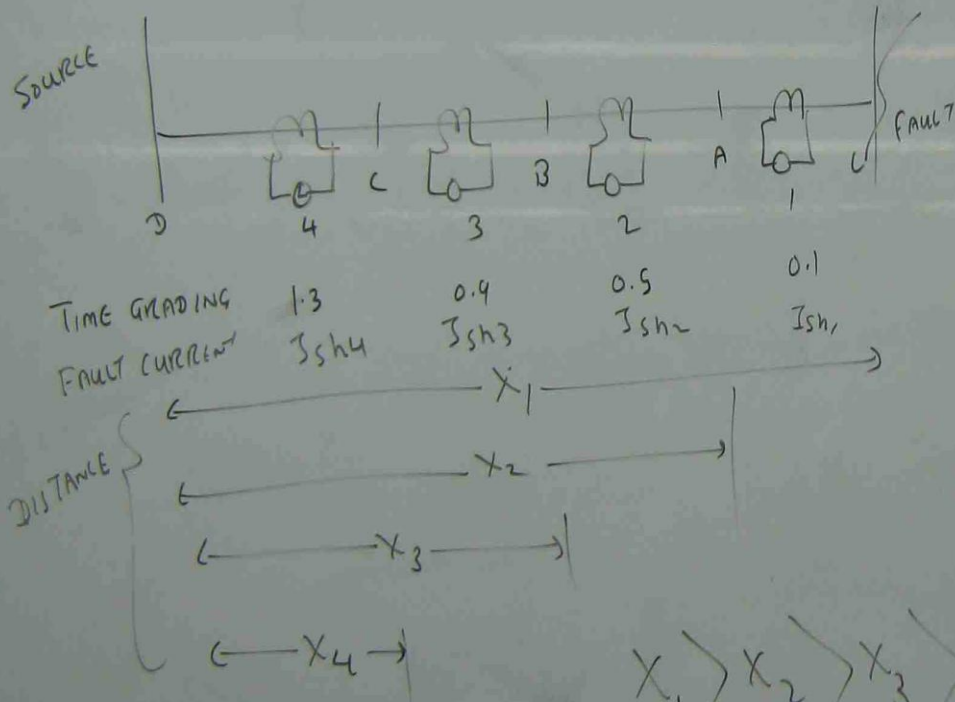 SOURCE
FAULT
D 4 C 3 B 2 A 1
TIME GRADING 1.3 0.9 0.5 0.1
FAULT CURRENT Ish4 Ish3 Ish2 Ish1
X1
DISTANCE
X2
X3
X4
X1 > X2 > X3 >